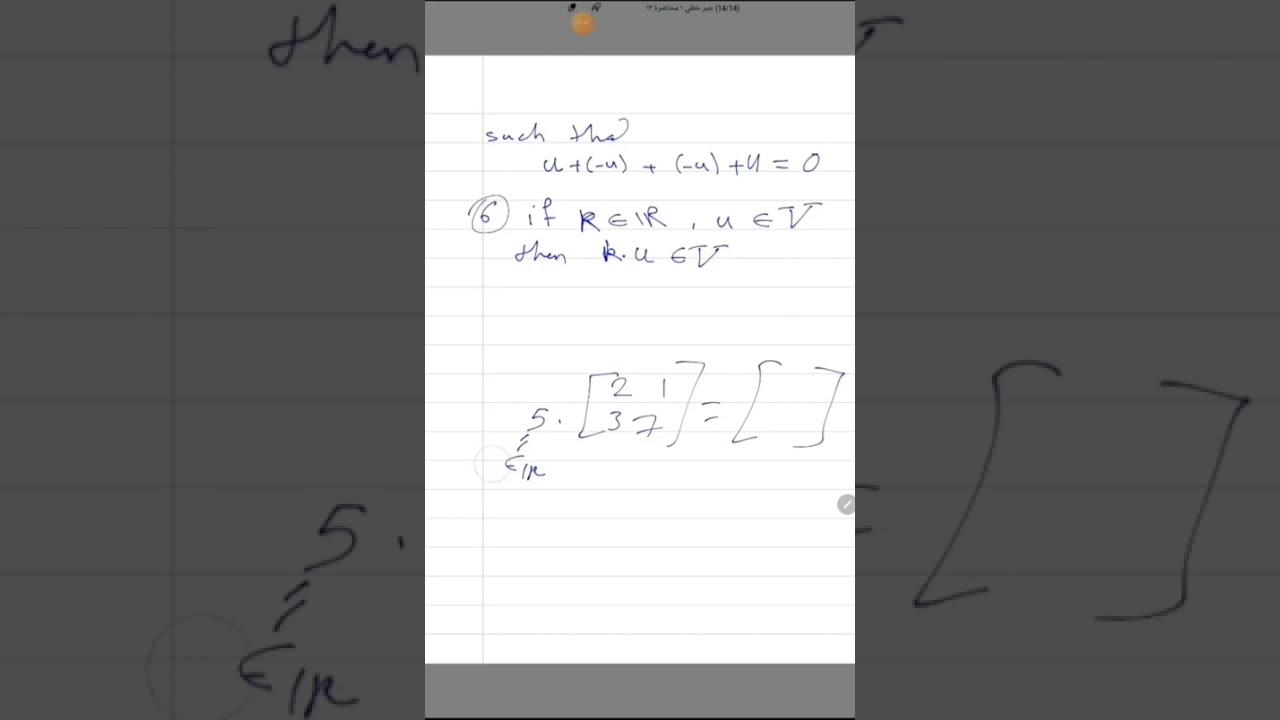 (14/14) جبر خطي ١ محاضرة ١٣
such tha
u+(-u) + (-u) + u = 0
⑥ if k ∈ ℝ , u ∈ V
then k.u ∈ V
5 . [ 2 1
3 7 ] = [ ]
∈ ℝ